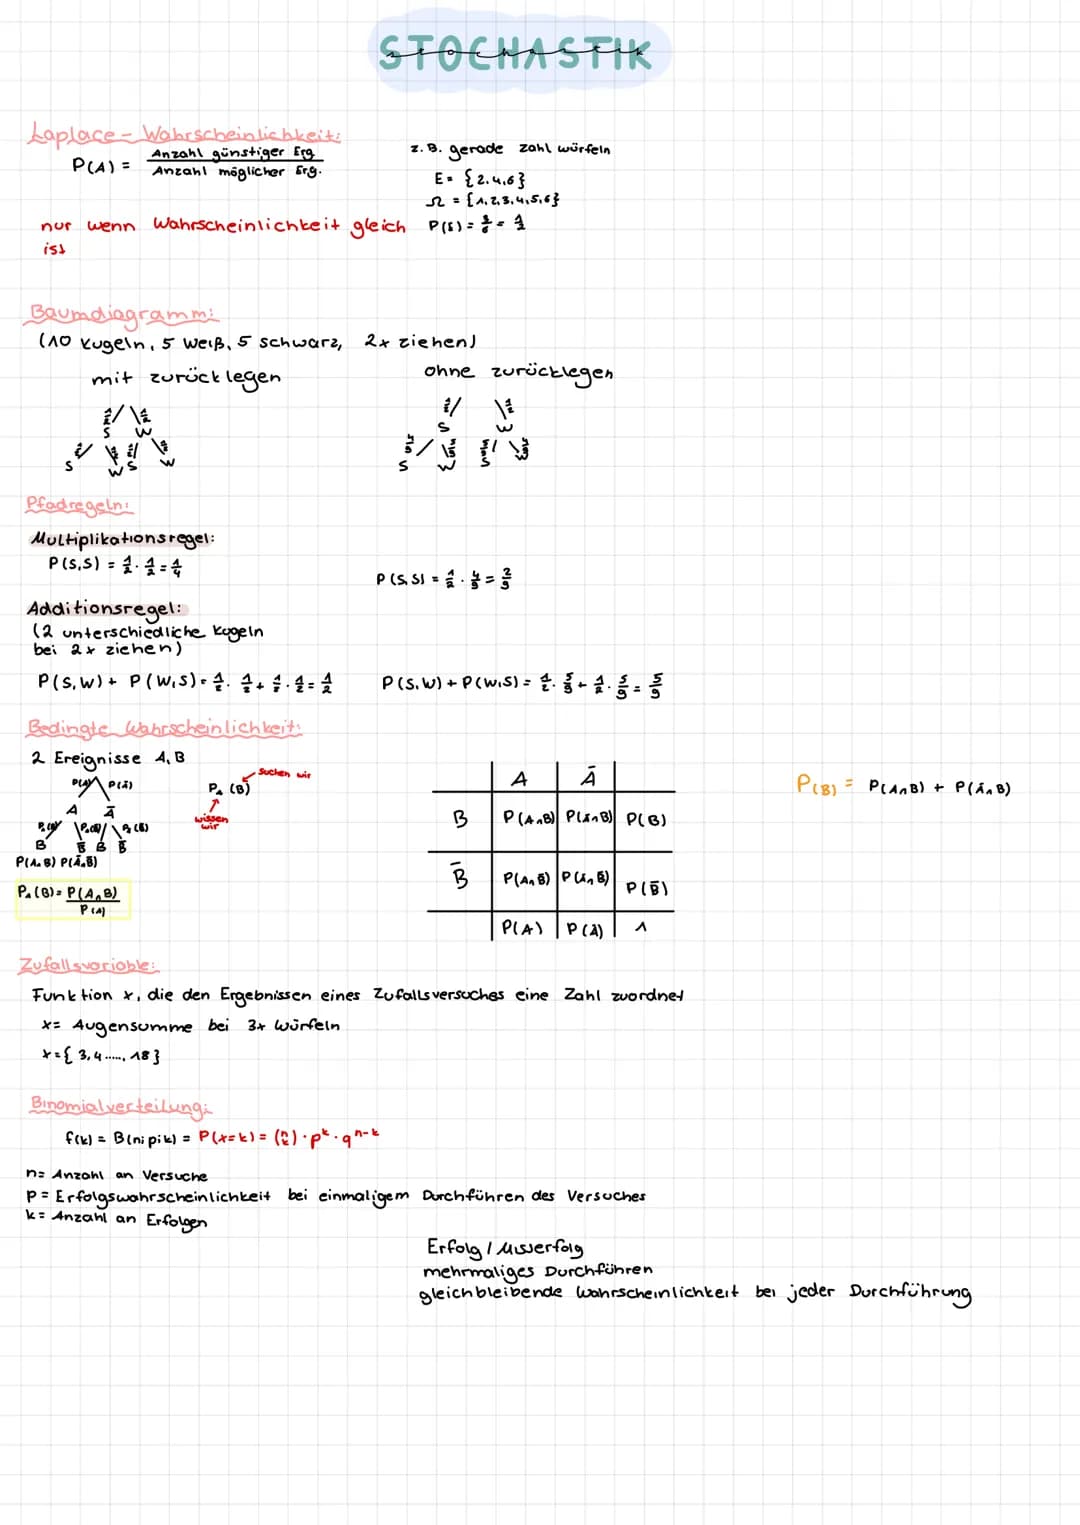 STOCHASTIK
stochastik
Laplace - Wahrscheinlichkeit:
P(A) = Anzahl günstiger Erg. / Anzahl möglicher Erg.
z.B. gerade zahl würfeln
E = {2,4,6}
Ω = {1,2,3,4,5,6}
P(E) = 3/6 = 1/2
nur wenn Wahrscheinlichkeit gleich
ist
Baumdiagramm:
(10 Kugeln, 5 weiß, 5 schwarz, 2x ziehen)
mit zurücklegen
ohne zurücklegen
1/2 1/2
S W
1/2 1/2 1/2 1/2
S W S W
1/2 1/2
S W
4/9 5/9 5/9 4/9
S W S W
Pfadregeln:
Multiplikationsregel:
P(S,S) = 1/2 · 1/2 = 1/4
P(S,S) = 1/2 · 4/9 = 2/9
Additionsregel:
(2 unterschiedliche Kugeln
bei 2x ziehen)
P(S,W) + P(W,S) = 1/2 · 1/2 + 1/2 · 1/2 = 1/2
P(S,W) + P(W,S) = 1/2 · 5/9 + 1/2 · 5/9 = 5/9
Bedingte Wahrscheinlichkeit:
2 Ereignisse A, B
P(A) P(Ā)
A Ā
B B̄ B B̄
P(A∩B) P(Ā∩B̄)
P_A(B) = P(A∩B) / P(A)
suchen wir
P_A (B)
wissen
wir
A Ā
B P(A∩B) P(Ā∩B) P(B)
B̄ P(A∩B̄) P(Ā∩B̄) P(B̄)
P(A) P(Ā) 1
P(B) = P(A∩B) + P(Ā∩B)
Zufallsvariable:
Funktion x, die den Ergebnissen eines Zufallsversuches eine Zahl zuordnet
x = Augensumme bei 3x würfeln
x = {3,4....., 18}
Binomialverteilung:
f(k) = B(n;p;k) = P(x=k) = (n k) · p^k · q^n-k
n = Anzahl an Versuche
P = Erfolgswahrscheinlichkeit bei einmaligem Durchführen des Versuches
k = Anzahl an Erfolgen
Erfolg / Misserfolg
mehrmaliges Durchführen
gleichbleibende Wahrscheinlichkeit bei jeder Durchführung